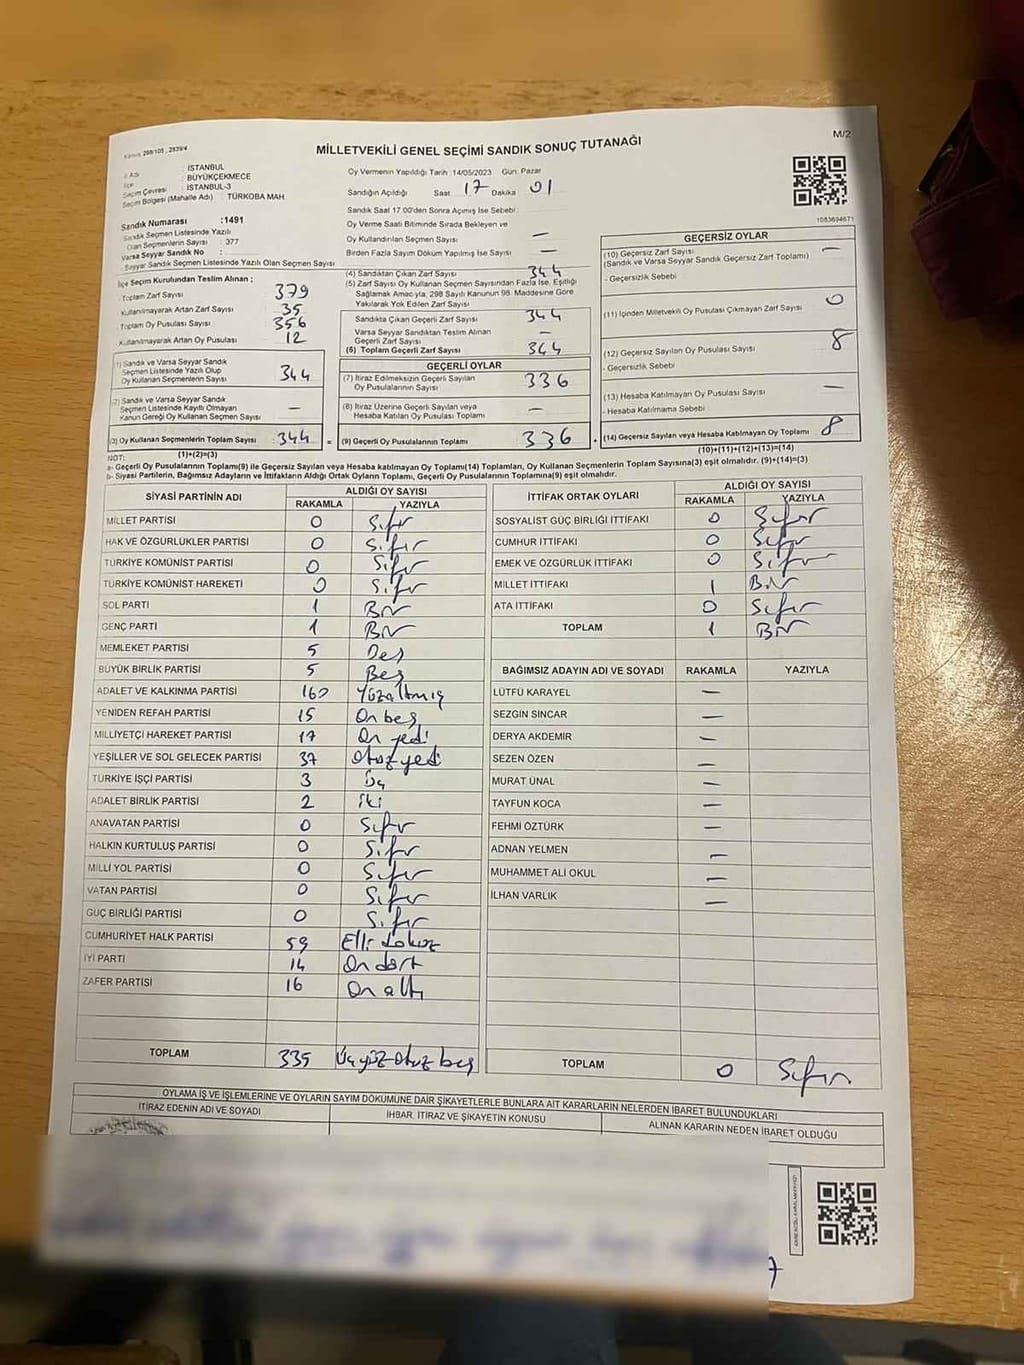 Kanun: 298/105 , 2839/4
M/2
MİLLETVEKİLİ GENEL SEÇİMİ SANDIK SONUÇ TUTANAĞI
İl Adı : İSTANBUL
İlçe : BÜYÜKÇEKMECE
Seçim Çevresi : İSTANBUL-3
Seçim Bölgesi (Mahalle Adı) : TÜRKOBA MAH.
Sandık Numarası :1491
Sandık Seçmen Listesinde Yazılı
Olan Seçmenlerin Sayısı : 377
Varsa Seyyar Sandık No :
Seyyar Sandık Seçmen Listesinde Yazılı Olan Seçmen Sayısı :
İlçe Seçim Kurulundan Teslim Alınan ;
Toplam Zarf Sayısı 379
Kullanılmayarak Artan Zarf Sayısı 35
Toplam Oy Pusulası Sayısı 356
Kullanılmayarak Artan Oy Pusulası 12
(1) Sandık ve Varsa Seyyar Sandık
Seçmen Listesinde Yazılı Olup
Oy Kullanan Seçmenlerin Sayısı 344
(2) Sandık ve Varsa Seyyar Sandık
Seçmen Listesinde Kayıtlı Olmayan
Kanun Gereği Oy Kullanan Seçmen Sayısı —
(3) Oy Kullanan Seçmenlerin Toplam Sayısı 344
(1)+(2)=(3)
Oy Vermenin Yapıldığı Tarih :14/05/2023 Gün: Pazar
Sandığın Açıldığı Saat 17 Dakika 01
Sandık Saat 17:00'den Sonra Açılmış İse Sebebi
Oy Verme Saati Bitiminde Sırada Bekleyen ve
Oy Kullandırılan Seçmen Sayısı —
Birden Fazla Sayım Döküm Yapılmış İse Sayısı —
(4) Sandıktan Çıkan Zarf Sayısı 344
(5) Zarf Sayısı Oy Kullanan Seçmen Sayısından Fazla İse, Eşitliği
Sağlamak Amacıyla, 298 Sayılı Kanunun 98. Maddesine Göre
Yakılarak Yok Edilen Zarf Sayısı
Sandıkta Çıkan Geçerli Zarf Sayısı 344
Varsa Seyyar Sandıktan Teslim Alınan
Geçerli Zarf Sayısı —
(6) Toplam Geçerli Zarf Sayısı 344
GEÇERLİ OYLAR
(7) İtiraz Edilmeksizin Geçerli Sayılan
Oy Pusulalarının Sayısı 336
(8) İtiraz Üzerine Geçerli Sayılan veya
Hesaba Katılan Oy Pusulası Toplamı —
= (9) Geçerli Oy Pusulalarının Toplamı 336
1083694671
GEÇERSİZ OYLAR
(10) Geçersiz Zarf Sayısı —
(Sandık ve Varsa Seyyar Sandık Geçersiz Zarf Toplamı)
- Geçersizlik Sebebi
(11) İçinden Milletvekili Oy Pusulası Çıkmayan Zarf Sayısı 0
(12) Geçersiz Sayılan Oy Pusulası Sayısı 8
- Geçersizlik Sebebi
(13) Hesaba Katılmayan Oy Pusulası Sayısı —
- Hesaba Katılmama Sebebi
+ (14) Geçersiz Sayılan veya Hesaba Katılmayan Oy Toplamı 8
(10)+(11)+(12)+(13)=(14)
NOT:
a- Geçerli Oy Pusulalarının Toplamı(9) ile Geçersiz Sayılan veya Hesaba katılmayan Oy Toplamı(14) Toplamları, Oy Kullanan Seçmenlerin Toplam Sayısına(3) eşit olmalıdır. (9)+(14)=(3)
b- Siyasi Partilerin, Bağımsız Adayların ve İttifakların Aldığı Ortak Oyların Toplamı, Geçerli Oy Pusulalarının Toplamına(9) eşit olmalıdır.
SİYASİ PARTİNİN ADI ALDIĞI OY SAYISI
RAKAMLA YAZIYLA
MİLLET PARTİSİ 0 Sıfır
HAK VE ÖZGÜRLÜKLER PARTİSİ 0 Sıfır
TÜRKİYE KOMÜNİST PARTİSİ 0 Sıfır
TÜRKİYE KOMÜNİST HAREKETİ 0 Sıfır
SOL PARTİ 1 Bir
GENÇ PARTİ 1 Bir
MEMLEKET PARTİSİ 5 Beş
BÜYÜK BİRLİK PARTİSİ 5 Beş
ADALET VE KALKINMA PARTİSİ 160 Yüzaltmış
YENİDEN REFAH PARTİSİ 15 On beş
MİLLİYETÇİ HAREKET PARTİSİ 17 On yedi
YEŞİLLER VE SOL GELECEK PARTİSİ 37 Otuz yedi
TÜRKİYE İŞÇİ PARTİSİ 3 Üç
ADALET BİRLİK PARTİSİ 2 İki
ANAVATAN PARTİSİ 0 Sıfır
HALKIN KURTULUŞ PARTİSİ 0 Sıfır
MİLLİ YOL PARTİSİ 0 Sıfır
VATAN PARTİSİ 0 Sıfır
GÜÇ BİRLİĞİ PARTİSİ 0 Sıfır
CUMHURİYET HALK PARTİSİ 59 Elli dokuz
İYİ PARTİ 14 On dört
ZAFER PARTİSİ 16 On altı
TOPLAM 335 Üç yüz otuz beş
İTTİFAK ORTAK OYLARI ALDIĞI OY SAYISI
RAKAMLA YAZIYLA
SOSYALİST GÜÇ BİRLİĞİ İTTİFAKI 0 Sıfır
CUMHUR İTTİFAKI 0 Sıfır
EMEK VE ÖZGÜRLÜK İTTİFAKI 0 Sıfır
MİLLET İTTİFAKI 1 Bir
ATA İTTİFAKI 0 Sıfır
TOPLAM 1 Bir
BAĞIMSIZ ADAYIN ADI VE SOYADI RAKAMLA YAZIYLA
LÜTFÜ KARAYEL —
SEZGİN SİNCAR —
DERYA AKDEMİR —
SEZEN ÖZEN —
MURAT ÜNAL —
TAYFUN KOCA —
FEHMİ ÖZTÜRK —
ADNAN YELMEN —
MUHAMMET ALİ OKUL —
İLHAN VARLIK —
TOPLAM 0 Sıfır
OYLAMA İŞ VE İŞLEMLERİNE VE OYLARIN SAYIM DÖKÜMÜNE DAİR ŞİKAYETLERLE BUNLARA AİT KARARLARIN NELERDEN İBARET BULUNDUKLARI
İTİRAZ EDENİN ADI VE SOYADI
İHBAR, İTİRAZ VE ŞİKAYETİN KONUSU
ALINAN KARARIN NEDEN İBARET OLDUĞU